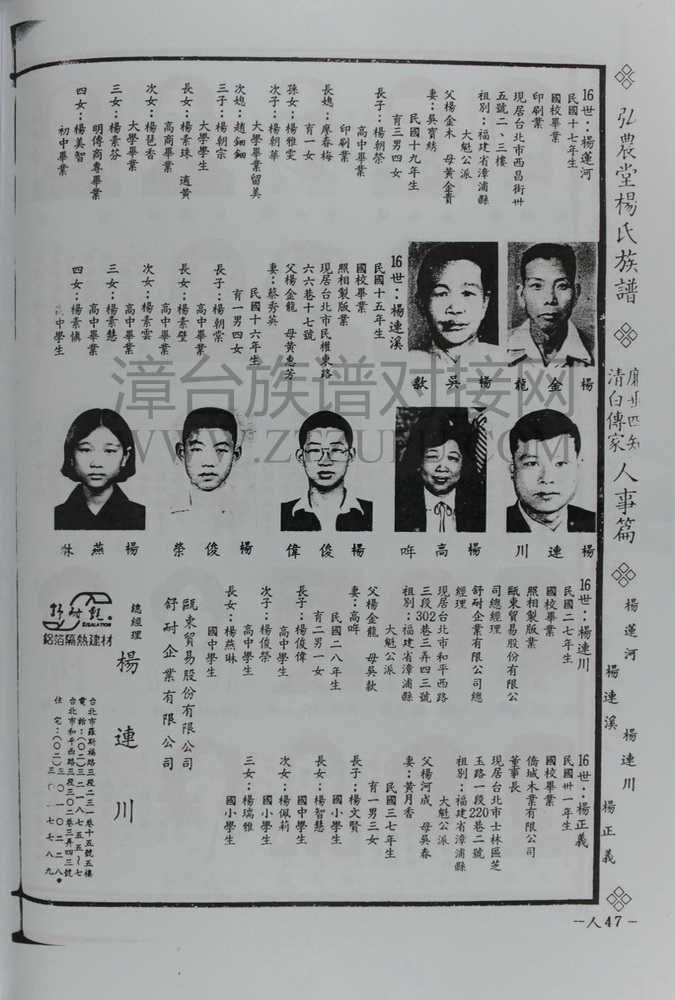 弘農堂楊氏族譜
清白傳家
人事篇
楊蓮河
楊連溪
楊連川
楊正義
16世：楊蓮河
民國十七年生
國校畢業
印刷業
現居台北市西昌街卅
五號二、三樓
祖別：福建省漳浦縣
大魁公派
父楊金木　母黃金賣
妻：吳寶綉
民國十九年生
育三男四女
長子：楊朝榮
高中畢業
印刷業
長媳：廖春梅
育一女
孫女：楊雅雯
次子：楊朝華
大學畢業留美
次媳：趙鈿鈿
三子：楊朝宗
大學學生
長女：楊素珠　適黃
高商畢業
次女：楊芭香
大學畢業
三女：楊素芬
明傳商專畢業
四女：楊美智
初中畢業
楊金龍
楊吳歀
16世：楊連溪
民國十五年生
國校畢業
照相製版業
現居台北市民權東路
六六巷十七號
父楊金龍　母黃惠芳
妻：蔡秀英
民國十六年生
育一男四女
長子：楊朝棠
高中畢業
長女：楊素壁
高中畢業
次女：楊素雲
高中畢業
三女：楊素慧
高中畢業
四女：楊素慎
中學生
楊連川
楊高哖
楊俊偉
楊俊榮
楊燕琳
16世：楊連川
民國二七年生
國校畢業
照相製版業
甌東貿易股份有限公
司總經理
舒耐企業有限公司總
經理
現居台北市和平西路
三段302巷三弄四三號
祖別：福建省漳浦縣
大魁公派
父楊金龍　母吳歀
妻：高哖
民國二八年生
育二男一女
長子：楊俊偉
高中學生
次子：楊俊榮
高中學生
長女：楊燕琳
國中學生
甌東貿易股份有限公司
舒耐企業有限公司
總經理
楊連川
台北市羅斯福路三段二三一巷十五號五樓
電話：(〇二)三二一八七五五～七
台北市和平西路三段三〇二巷三弄四三號
住宅：(〇二)三〇一〇二二八
三〇一七七八九
SISALATION
鋁箔隔熱建材
16世：楊正義
民國卅一年生
國校畢業
僑城木業有限公司
董事長
現居台北市士林區芝
玉路一段220巷二號
祖別：福建省漳浦縣
大魁公派
父楊河成　母吳春
妻：黃月香
民國三七年生
育一男三女
長子：楊文賢
國小學生
長女：楊智慧
國中學生
次女：楊佩莉
國小學生
三女：楊瑞雅
國小學生
－人47－
漳台族谱对接网
WWW.ZTZUPU.COM